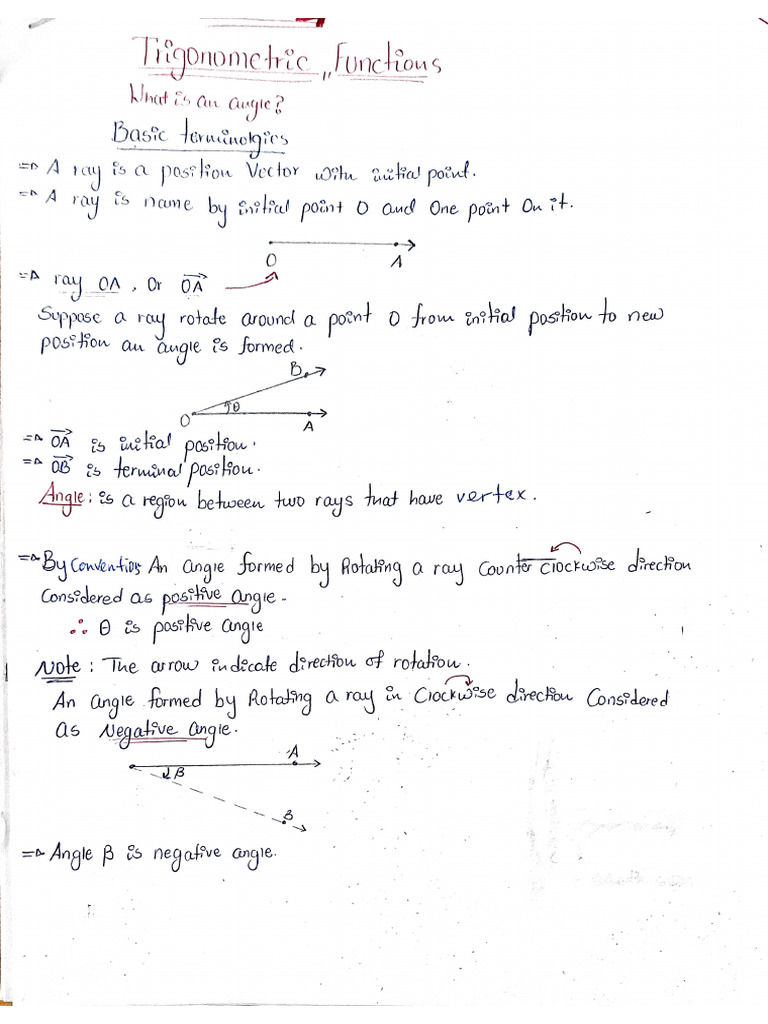 Trigonometric Functions
What is an angle?
Basic terminolgies
⇒ A ray is a position Vector with initial point.
⇒ A ray is name by initial point O and One point On it.
O A
⇒ ray OA, Or \overrightarrow{OA}
Suppose a ray rotate around a point O from initial position to new
position an angle is formed.
B
θ
O A
⇒ \overrightarrow{OA} is initial position.
⇒ \overrightarrow{OB} is terminal position.
Angle: is a region between two rays that have vertex.
⇒ By Convention: An angle formed by Rotating a ray Counter Clockwise direction
Considered as positive angle.
∴ θ is positive angle
Note: The arrow indicate direction of rotation.
An angle formed by Rotating a ray in Clockwise direction Considered
as Negative angle.
A
β
B
⇒ Angle β is negative angle.